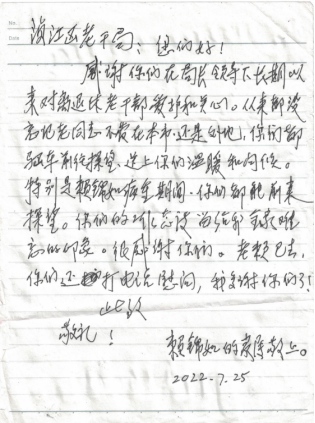 No.
Date
滨江区老干局：您们好！
感谢你们在局长领导下长期以
来对离退休老干部爱护和关心。从来都没
忘记老同志不管在本市还是外地，你们都
驱车前往探望，送上你们的温暖和问候。
特别是赖锦如病重期间，你们都能前来
探望。你们的工作态度给我家属留
下的印象。很感谢你们。老赖已去，
你们还打电话慰问，我多谢你们了！
此致
敬礼！
赖锦如的家属敬上。
2022.7.25